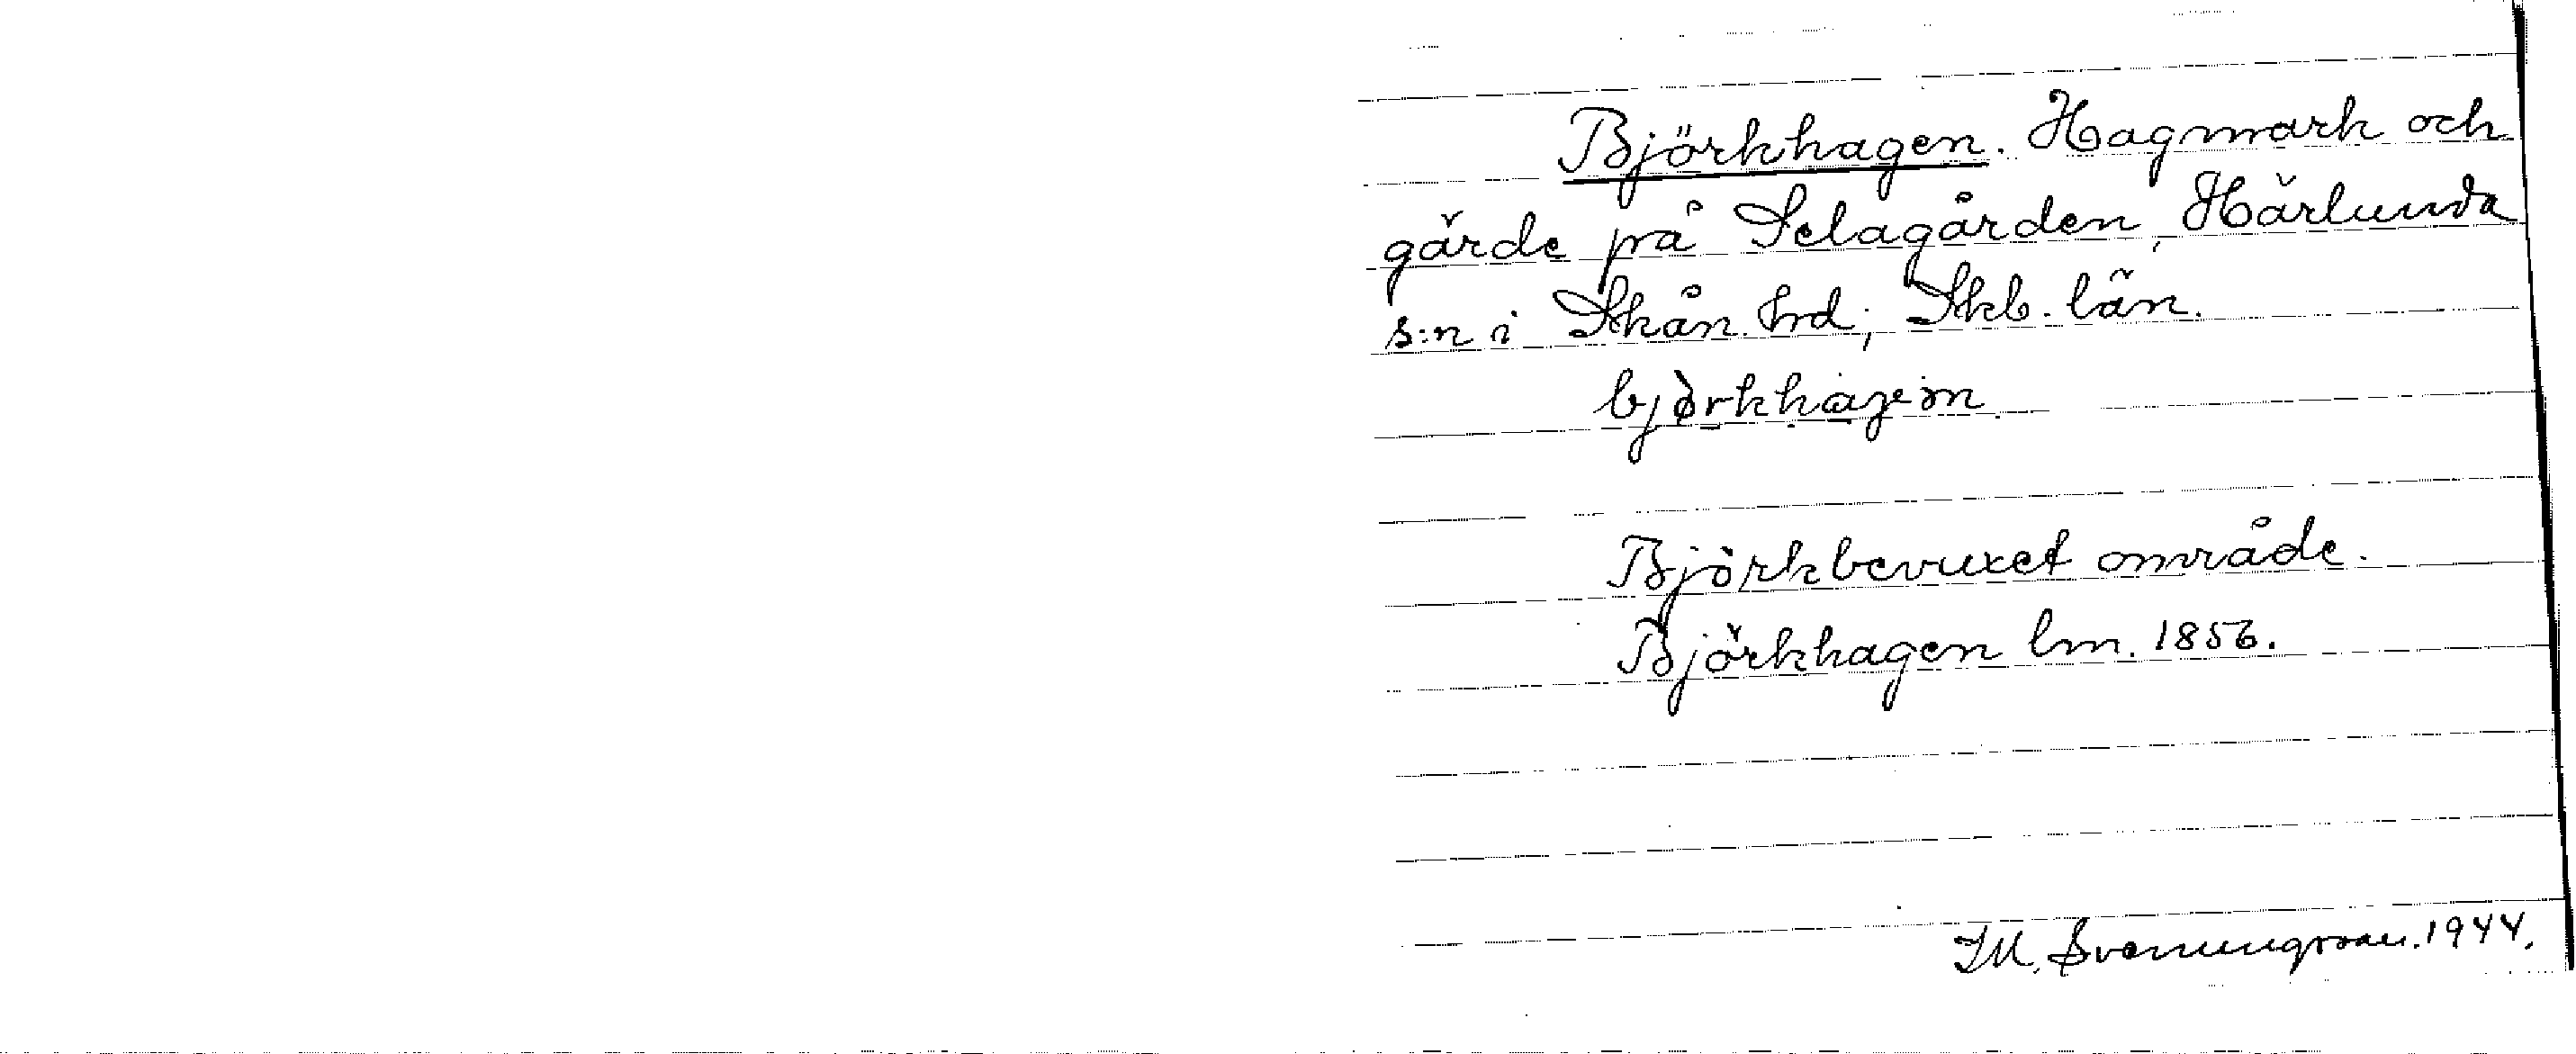 Björkhagen. Hagmark och
gärde på Selagården, Härlunda
s:n i Skån. hrd; Skb. län.
björkhagen
Björkbevuxet område.
Björkhagen lm. 1856.
M. Svenungsson. 1944.